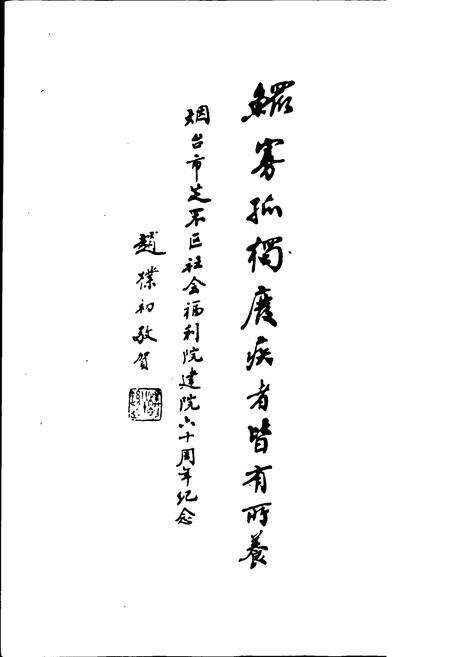 鰥寡孤獨廢疾者皆有所養
烟台市芝罘区社会福利院建院六十周年纪念
趙樸初敬賀